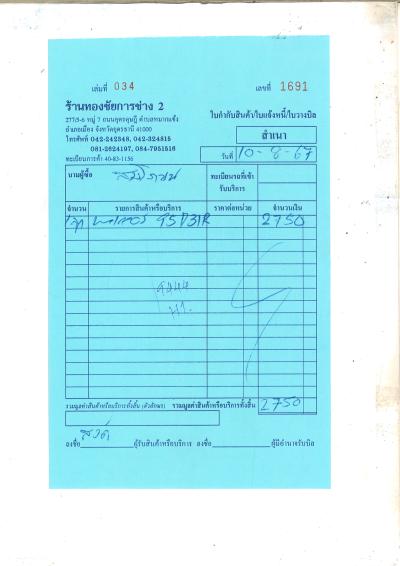 เล่มที่ 034 เลขที่ 1691
ร้านทองชัยการช่าง 2
277/5-6 หมู่ 7 ถนนอุดรดุษฎี ตำบลหมากแข้ง
อำเภอเมือง จังหวัดอุดรธานี 41000
โทรศัพท์ 042-242348, 042-324815
081-2624197, 084-7951516
ทะเบียนการค้า 40-83-1156
ใบกำกับสินค้า/ใบแจ้งหนี้/ใบวางบิล
สำเนา
วันที่ 10-8-67
นามผู้ซื้อ
ทะเบียนรถที่เข้ารับบริการ
จำนวน รายการสินค้าหรือบริการ ราคาต่อหน่วย จำนวนเงิน
2750
รวมมูลค่าสินค้าหรือบริการทั้งสิ้น (ตัวอักษร) รวมมูลค่าสินค้าหรือบริการทั้งสิ้น 2750
ลงชื่อ ผู้รับสินค้าหรือบริการ ลงชื่อ ผู้มีอำนาจรับบิล